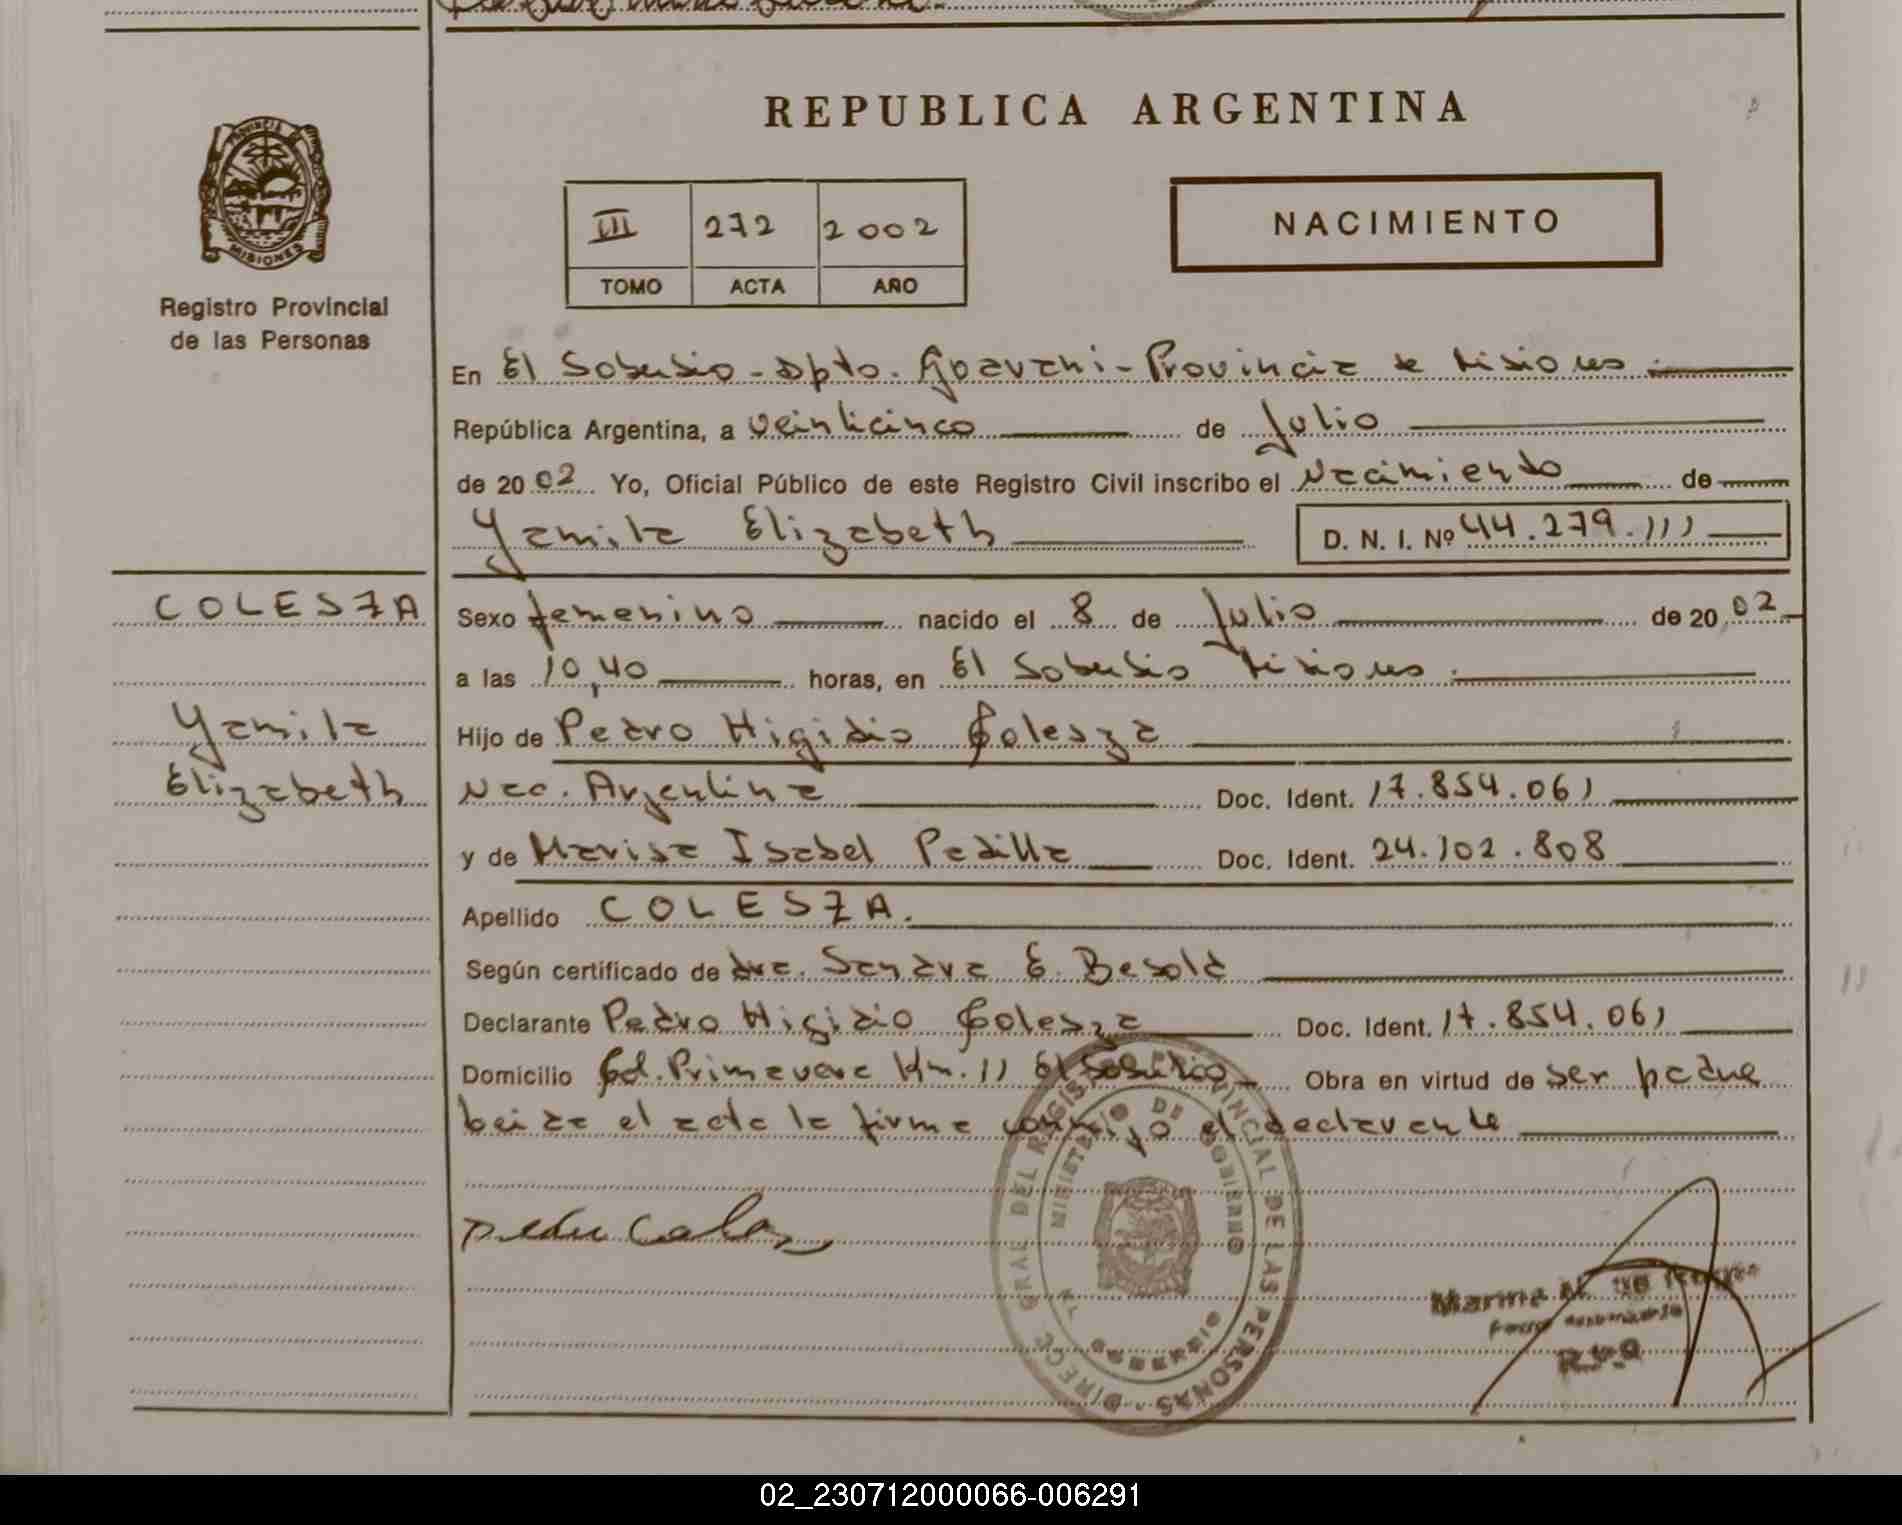 REPUBLICA ARGENTINA
PROVINCIA DE
MISIONES
Registro Provincial
de las Personas
III 272 2002
TOMO ACTA AÑO
NACIMIENTO
En El Soberbio - Dpto. Guarani - Provincia de Misiones .
República Argentina, a veinticinco de Julio
de 2002 Yo, Oficial Público de este Registro Civil inscribo el Nacimiento de
Yamila Elizabeth D. N. I. Nº 44.279.111
COLESZA
Yamila
Elizabeth
Sexo femenino nacido el 8 de Julio de 2002
a las 10,40 horas, en El Soberbio Misiones .
Hijo de Pedro Higidio Colesza
Nac. Argentina Doc. Ident. 17.854.061
y de Marisa Isabel Padilla Doc. Ident. 24.102.808
Apellido COLESZA.
Según certificado de dra. Sandra E. Besold
Declarante Pedro Higidio Colesza Doc. Ident. 17.854.061
Domicilio Cd. Primavera Km. 11 El Soberbio Obra en virtud de ser padre
leida el acta la firma conmigo el declarante
DIRECC. GRAL DEL REGIS PROVINCIAL DE LAS PERSONAS
MINISTERIO DE GOBIERNO
Marina
02_230712000066-006291